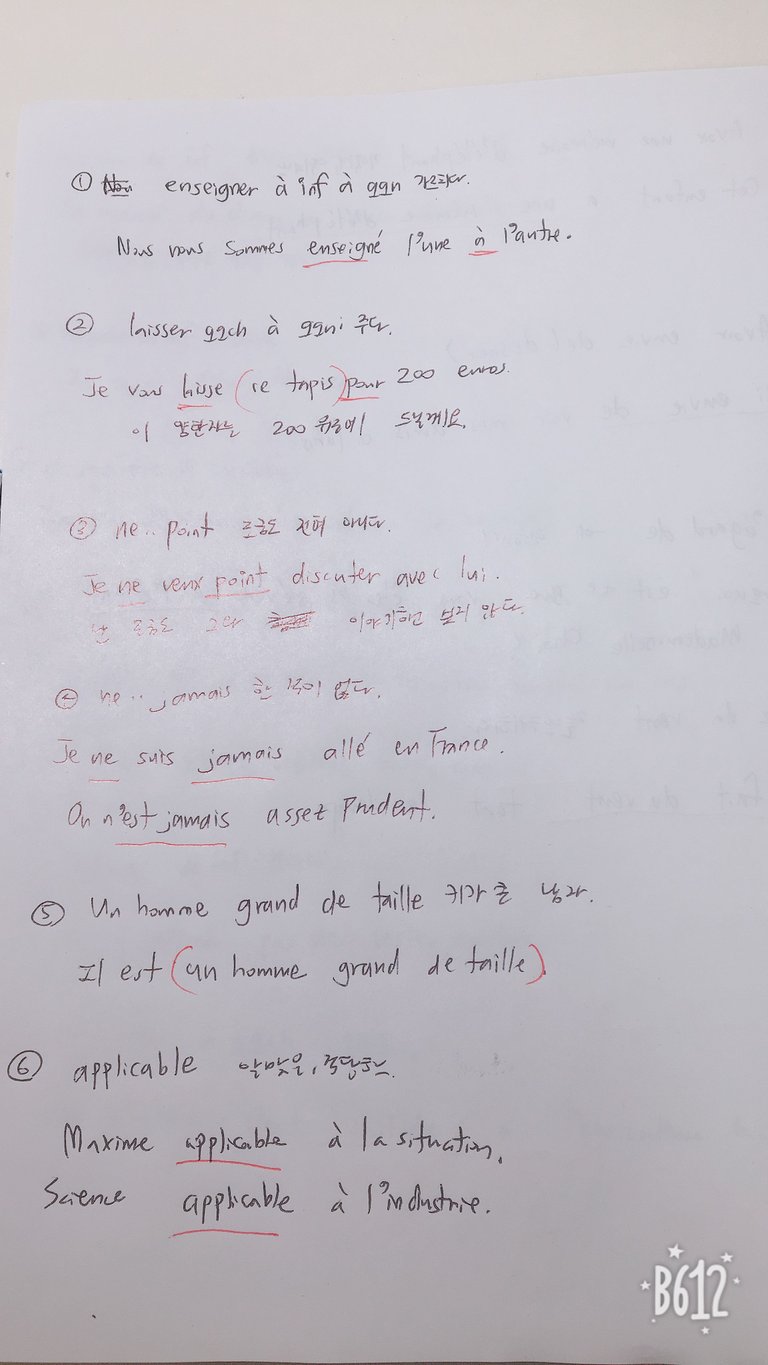 ① enseigner à inf à qqn 가르치다.
Nous nous sommes enseigné l'une à l'autre.
② laisser qqch à qqn i 주다.
Je vous laisse (ce tapis) pour 200 euros.
이 양탄자는 200 유로에 드릴게요.
③ ne.. point 조금도 전혀 아니다.
Je ne veux point discuter avec lui.
난 조금도 그와 이야기하고 싶지 않다.
④ ne.. jamais 한 적이 없다.
Je ne suis jamais allé en France.
On n'est jamais assez Prudent.
⑤ Un homme grand de taille 키가 큰 남자.
Il est (un homme grand de taille).
⑥ applicable 알맞은, 적당한.
Maxime applicable à la situation.
Science applicable à l'industrie.
B612